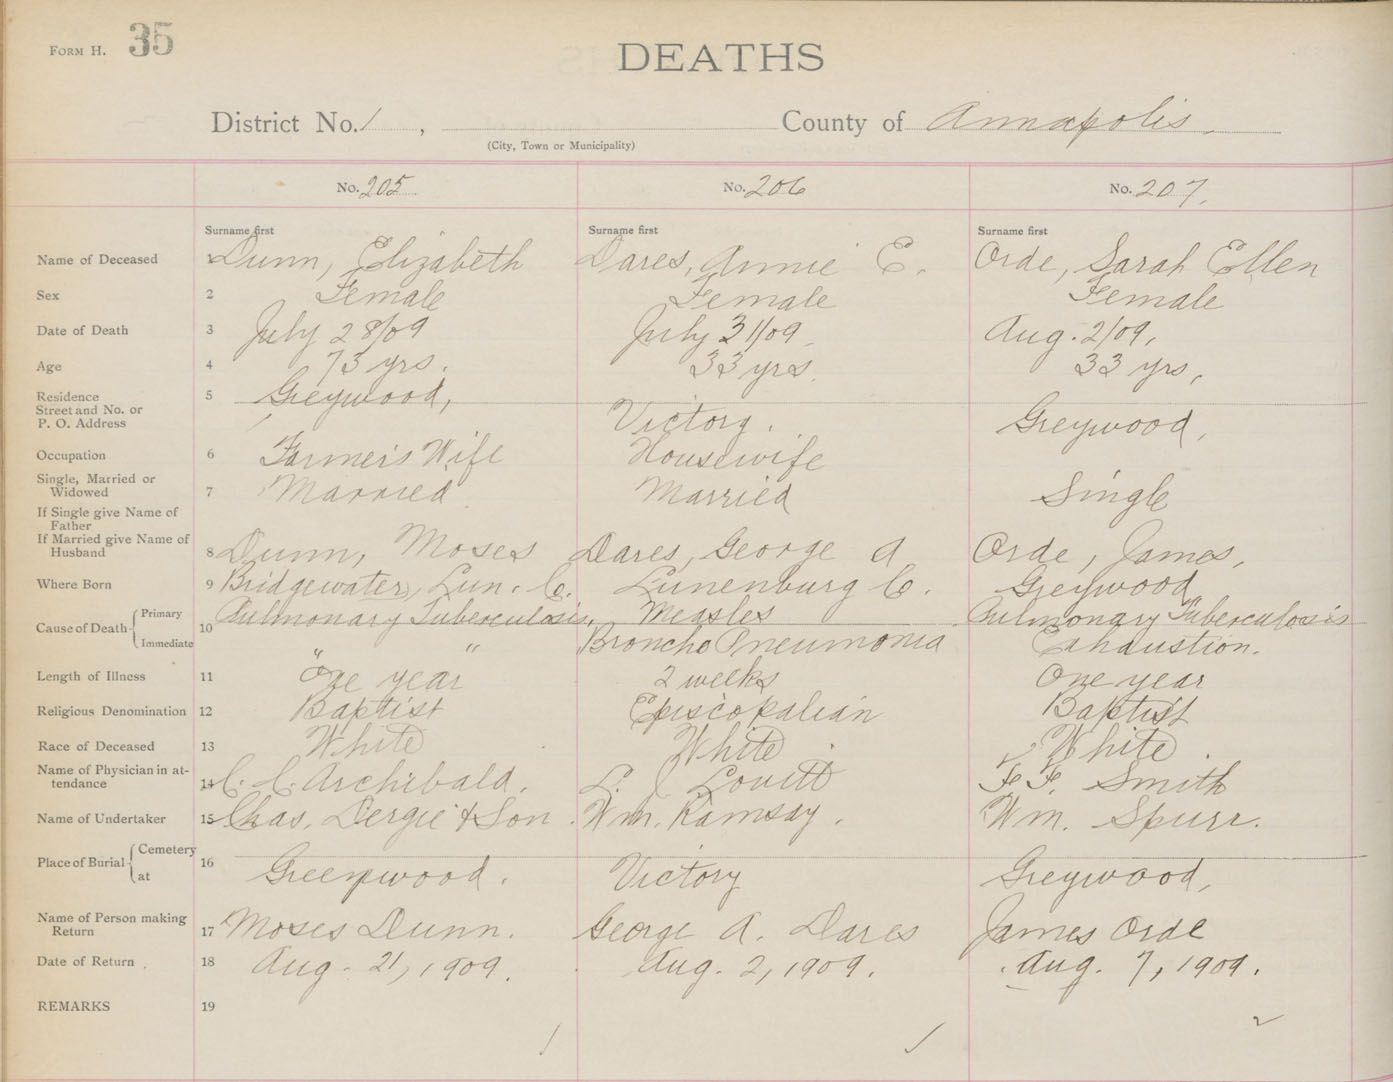 FORM H. 35
DEATHS
District No. 1, County of Annapolis,
(City, Town or Municipality)
No. 205 No. 206 No. 207,
Surname first Surname first Surname first
Name of Deceased 1 Dunn, Elizabeth Dares, Annie E. Orde, Sarah Ellen
Sex 2 Female Female Female
Date of Death 3 July 28/09 July 31/09 Aug. 2/09,
Age 4 73 yrs. 33 yrs. 33 yrs,
Residence 5 Greywood,
Street and No. or
P. O. Address Victory. Greywood,
Occupation 6 Farmer's Wife Housewife
Single, Married or
Widowed 7 Married Married Single
If Single give Name of
Father
If Married give Name of
Husband 8 Dunn, Moses Dares, George A Orde, James,
Where Born 9 Bridgewater, Lun. C. Lunenburg C. Greywood
Cause of Death Primary Pulmonary Tuberculosis, Measles Pulmonary Tuberculosis
10
Immediate " " Broncho Pneumonia Exhaustion.
Length of Illness 11 One year 2 weeks One year
Religious Denomination 12 Baptist Episcopalian Baptist
Race of Deceased 13 White White White
Name of Physician in at-
tendance 14 C. C. Archibald, L. J Lovitt F. F. Smith
Name of Undertaker 15 Chas. Dergie & Son Wm. Ramsay. Wm. Spurr.
Place of Burial Cemetery
16
at Greenwood. Victory Greywood,
Name of Person making
Return 17 Moses Dunn. George A. Dares James Orde
Date of Return 18 Aug. 21, 1909. Aug. 2, 1909. Aug. 7, 1909.
REMARKS 19